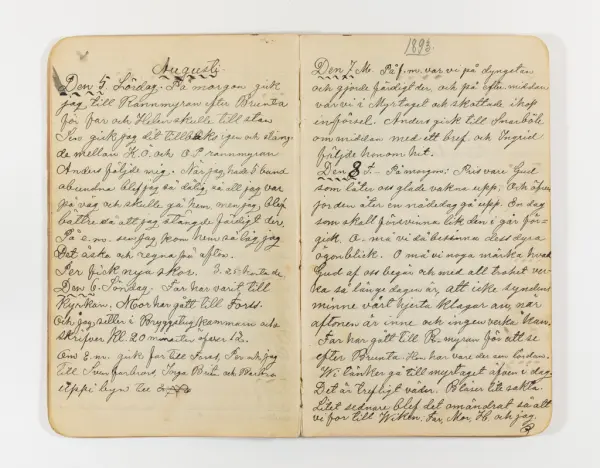 Augusti.
Den 5. Lördag. På morgon gick
jag till Rännmyran efter Brunta
för far och Helen skulle till stan
Sen gick jag dit tillbaks igen och stäng-
de mellan K.Ö. och O.P. rannmyran
Anders följde mig. När jag hade 5 band
obundna blef jag så dålig, så att jag var
på väg och skulle gå hem, men jag blef
bättre så att jag stängde färdigt der.
På e.m. sen jag kom hem så låg jag
Det åska och regna på afton.
Per fick nya skor. 3.25 kunta de.
Den 6. Söndag. Far har varit till
Kyrkan. Mor har gått till Forss.
Och jag sitter i Bryggstugkammarn och
skrifver Kl. 20 minuter öfver 12.
Om e.m. gick far till Forst, Per och jag
till Sven farbrors, Inga Brita och
uppi byn
1893
Den 7. M. På f.m. var vi på dyngstan
och gjorde färdigt der, och på efter middan
var vi i Myrtaget och skattade ihop
Anders gick till Snarböle
om middan med ett bref och Ingrid
följde honom hit.
Den 8 T. På morgon: Pris vare Gud
som låter oss glada vakna upp. Och äfven
jorden åter en nådedag gå upp. En dag
som skall försvinna lik den i går för-
gick. O må vi då besinna dess dyra
ögonblick. O må vi noga märka hvad
Gud af oss begär och med all trohet ver-
ka så länge dagen är, att icke syndens
minne vårt hjerta klagar an, när
aftonen är inne och ingen verka kan.
Far har gått till R.myran för att se
efter Brunta. Hon har vari der sen lördan.
Vi tänker gå till myrtaget äfven i dag.
Det är trefligt väder. Blåser lite sakta.
Litet sednare blef det omändrat så att
vi for till Wiken. Far, Mor, H. och jag.